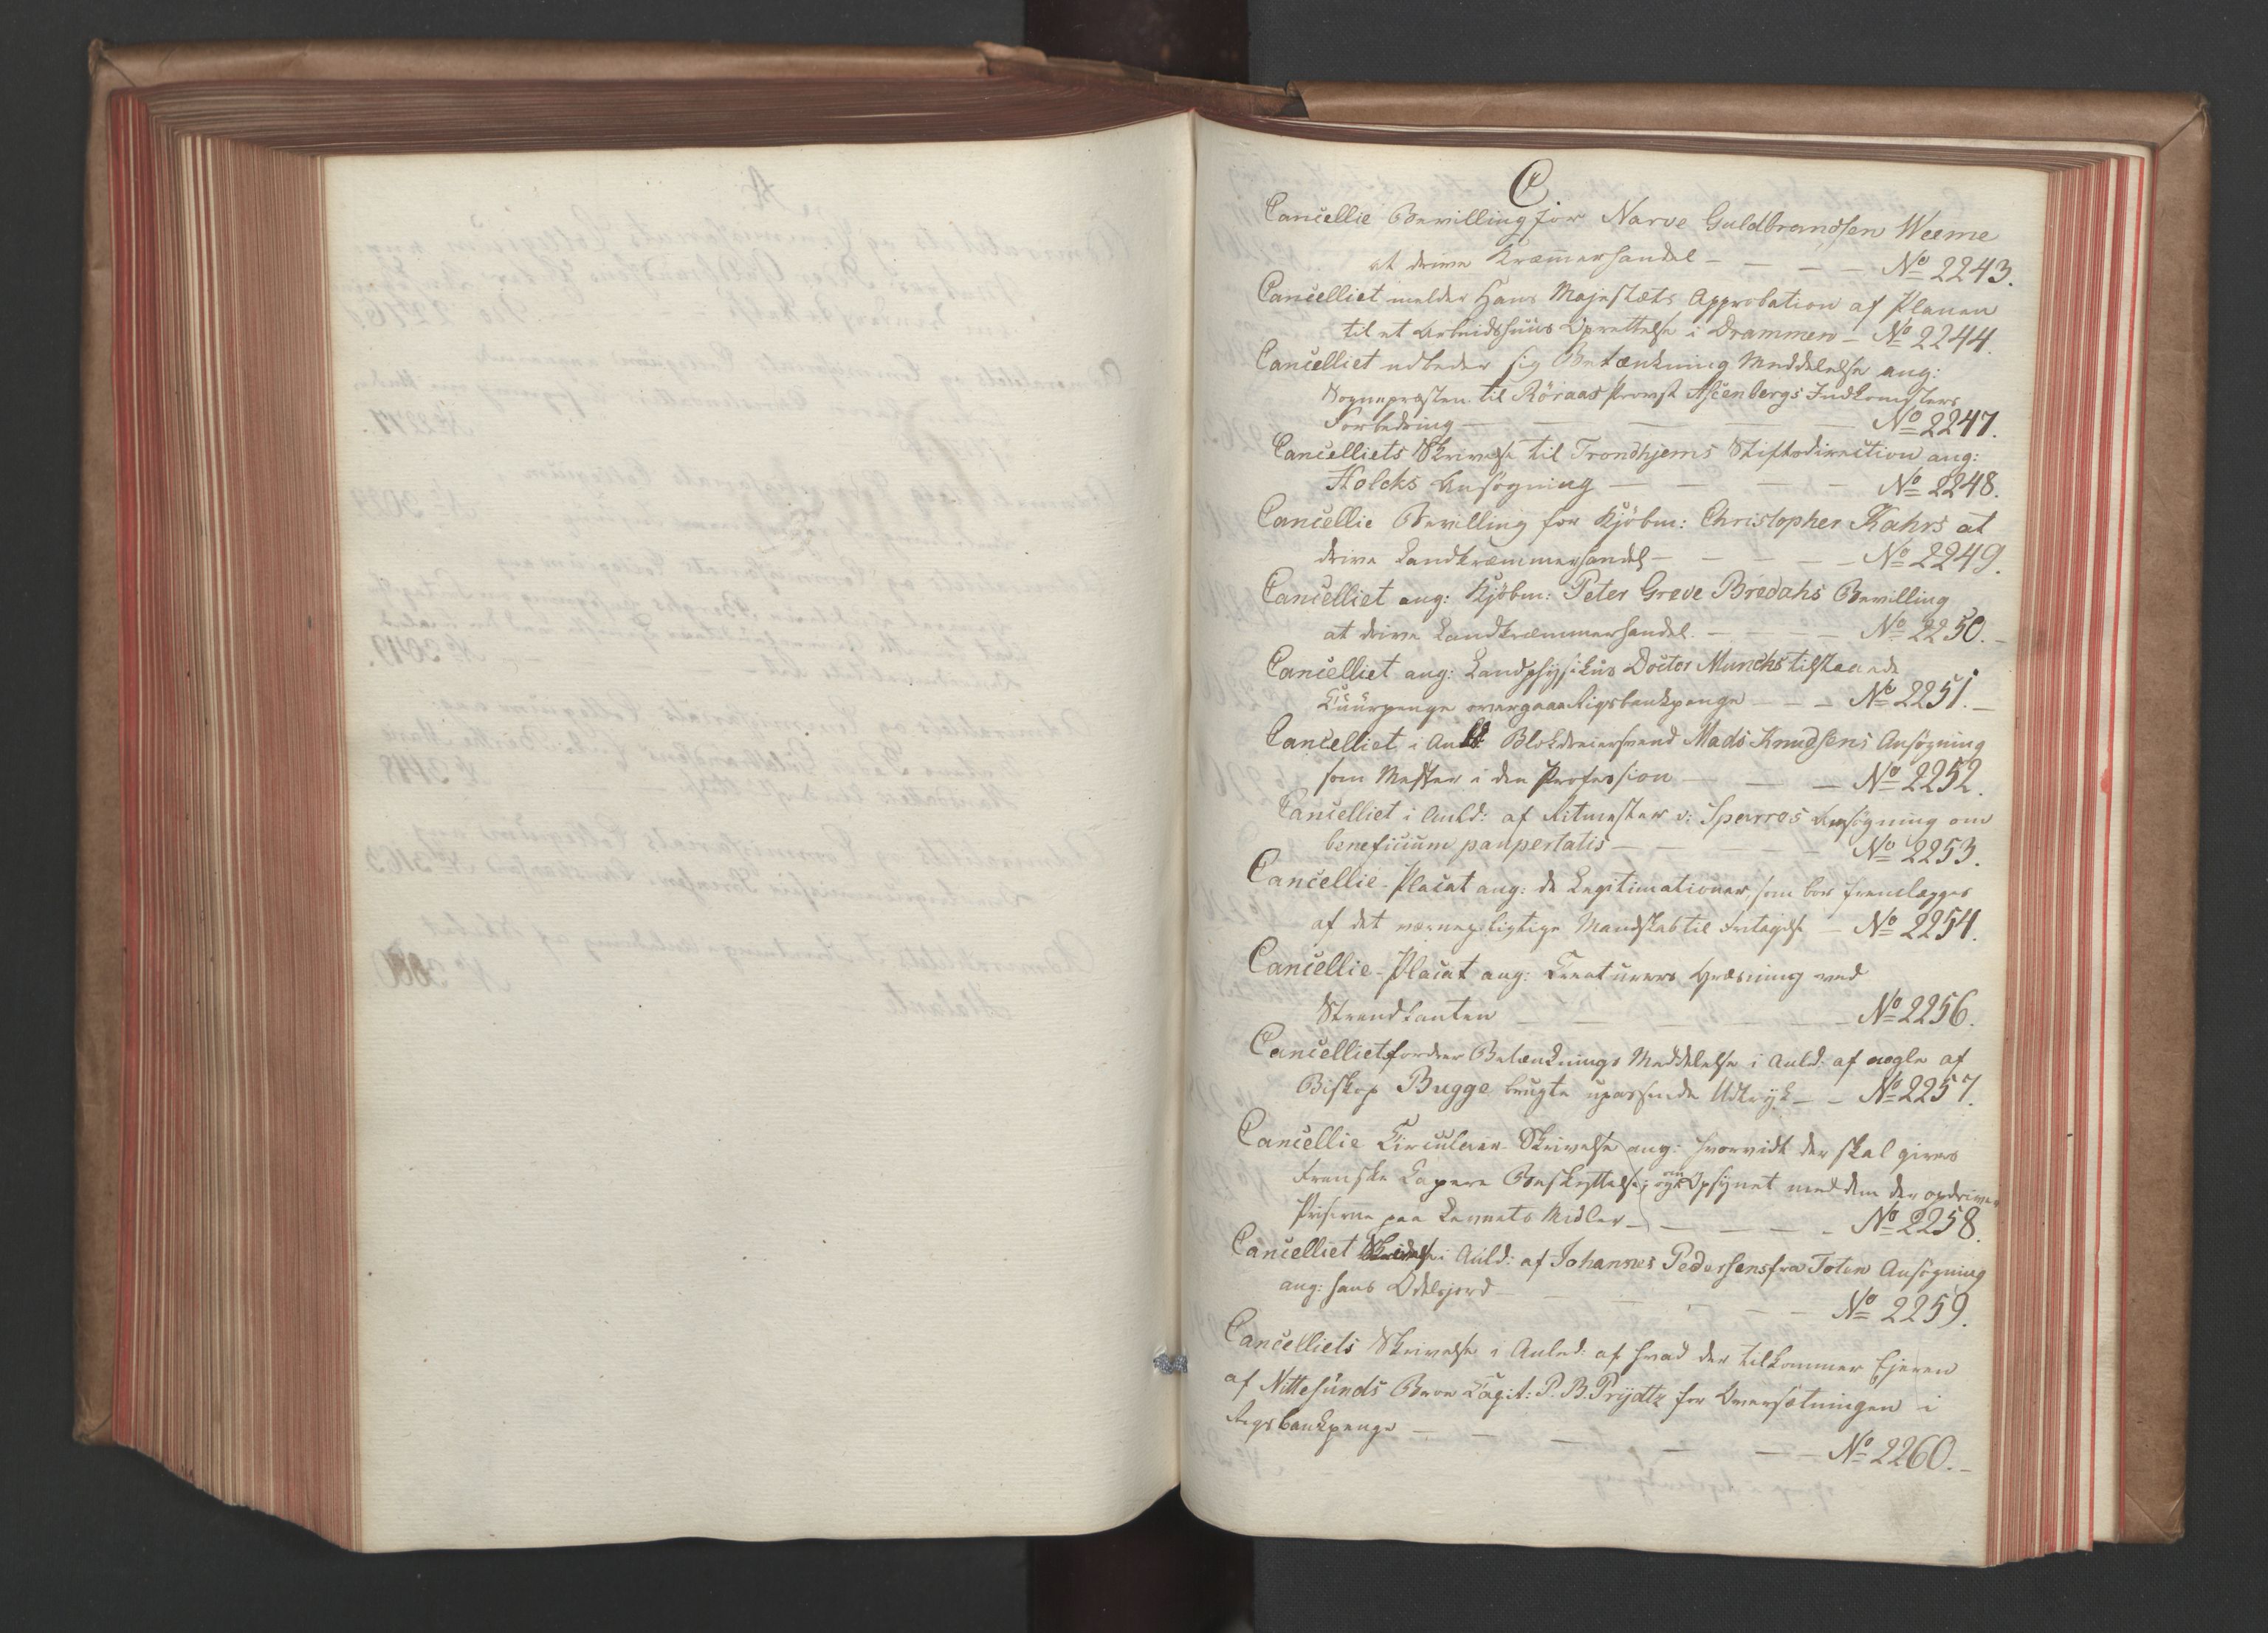 C.
Cancellie Bevilling for Narve Guldbrandsen Weeme
at drive Kræmmerhandel - - - - No 2243.
Cancelliet melder Hans Majestæts Approbation af Planen
til et Arbeidshuus Oprettelse i Drammen - No 2244.
Cancelliet udbeder sig Betænkning Meddelelse ang:
Sognepræsten til Röraas Provst Ascenbergs Indkomsters
Forbedring - - - - - No 2247.
Cancelliets Skrivelse til Trondhjems Stiftsdirection ang:
Holcks Ansögning - - - - No 2248.
Cancellie Bevilling for Kjöbm: Christopher Kahrs at
drive Landkræmmerhandel - - - - No 2249.
Cancelliet ang: Kjöbm: Peter Greve Bredahs Bevilling
at drive Landkræmmerhandel. - - - - No 2250. -
Cancelliet ang: Landphysikus Doctor Munchs tilstaaede
Kuurpenge overgaaer Rigsbankpenge - - - No 2251. -
Cancelliet i Blokdreiersvend Mads Knudsens Ansögning
som Mester i den Profession - - - No 2252.
Cancelliet i Anld: af Ritmester v: Sperros Ansögning om
beneficium paupertatis - - - - No 2253.
Cancellie-Placat ang: de Legitimationer som bör fremlægges
af det værnepligtige Mandskab til Fritagelse - No 2254.
Cancellie-Placat ang: Creaturers Græsning ved
Strandkanten - - - - - No 2256.
Cancelliet fordrer Betænknings Meddelelse i Anld: af nogle af
Biskop Bugge brugte upassende Udtryk - - No 2257.
Cancellie Circulair-Skrivelse ang: hvorvidt der skal gives
Franske Kapere Beskyttelse; og om Opsynet med dem der opdriver
Priserne paa Landets Midler - - - - No 2258.
Cancelliet i Anld: af Johannes Pedersens fra Toten Ansögning
ang: hans Odelsjord - - - - - No 2259.
Cancelliets Skrivelse i Anled: af hvad der tilkommer Ejeren
af Nittesunds Broe Capit: P. B. Prydtz for Oversætningen i
Rigsbankpenge - - - - - No 2260. -